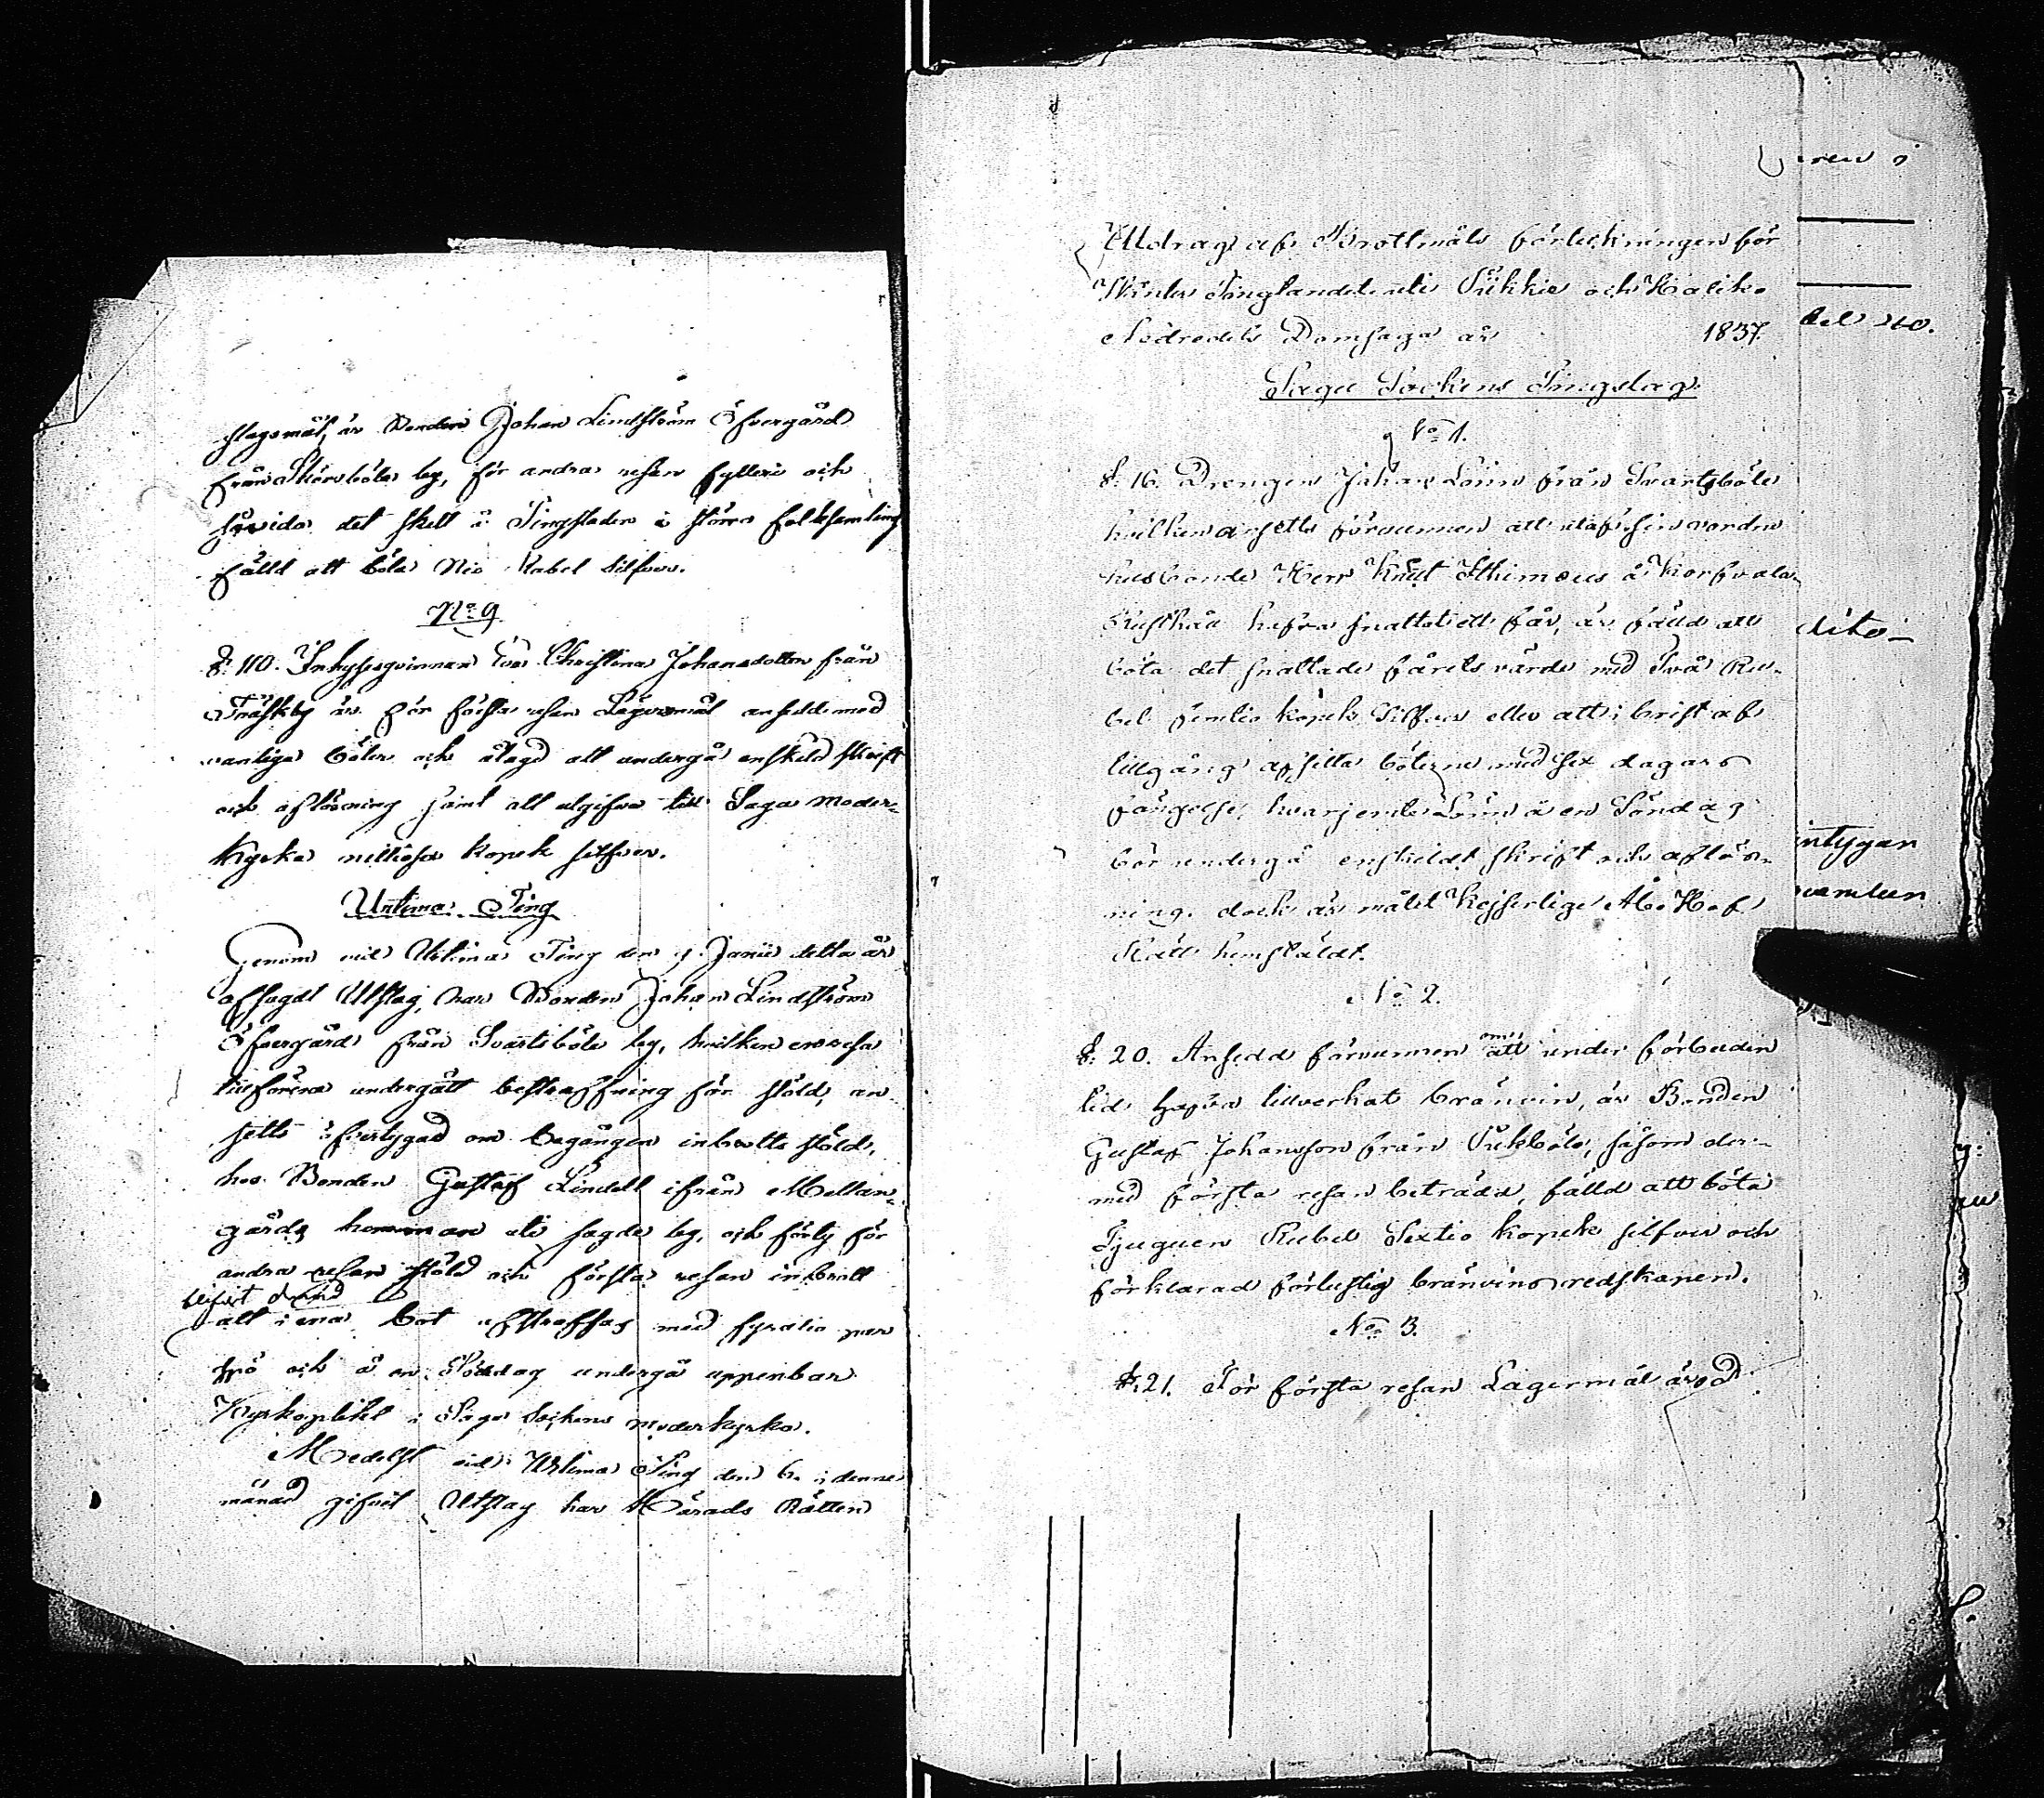 slagsmål, är Bonden Johan Lindström Öfvergård
från Skörsböle by, för andra resan fylleri och
såvida det skett å Tingstaden i större folksamling
fälld att böta Nio Rubel silfver.
No 9
§. 110. Inhysesqvinnan Eva Christina Johansdotter från
Träskby är för första resan Lägersmål ansedd med
vanliga böter och ålagd att undergå enskild skrift
och aflösning samt att utgifva till Sagu moder-
kyrka nittiosex kopek silfver.
Urtima Ting
Genom vid Urtima Ting den 9 Junii detta år
afsagdt Utslag, har Bonden Johan Lindström
Öfvergård från Svartsböle by, hvilken en resa
tillförene undergått bestraffning för stöld, an-
setts öfvertygad om begången inbrotts stöld,
hos Bonden Gustaf Lindell ifrån Mellan-
gårds hemman uti sagde by, och förty för
andra resan stöld och första resan inbrott
blifvit dömd
att i ena bot afstraffas med fyratio par
spö och å en Söndag undergå uppenbar
Kyrkoplikt i Sagu Sockens moderkyrka.
Medelst vid Urtima Ting den 6. i denne
månad gifvit Utslag har Härads Rätten
Utdrag af Brottmåls förteckningen för
Vinter Tinglandet uti Pikkie och Haliko
Nedredels Domsaga år 1837.
Sagu Sockens Tingslag.
No 1.
§. 16. Drengen Johan Lönn från Svartsböle
hvilken ansetts förvunnen att utaf sin vordne
husbonde Herr Knut Ithimæus å Korfvala
Rusthåll hafva snattat ett får, är fälld att
böta det snattade fårets värde med Två Ru-
bel femtio kopek Silfver eller att i brist af
tillgång afsitta böterne med sex dagars
fängelse, hvarjemte Lönn å en Söndag
bör undergå enskildt skrift och aflös-
ning. dock är målet Kejserlige Åbo Hof
Rätt hemställdt.
No 2.
§. 20. Ansedd förvunnen om att under förbuden
tid hafva tillverkat bränvin, är Bonden
Gustaf Johansson från Pukböle, såsom der-
med första resan beträdd, fälld att böta
Tjuguen Rubel Sextio kopek silfver och
förklarad förlustig bränvins redskapen.
No 3.
§. 21. För första resan Lägersmål är
dito
intygan